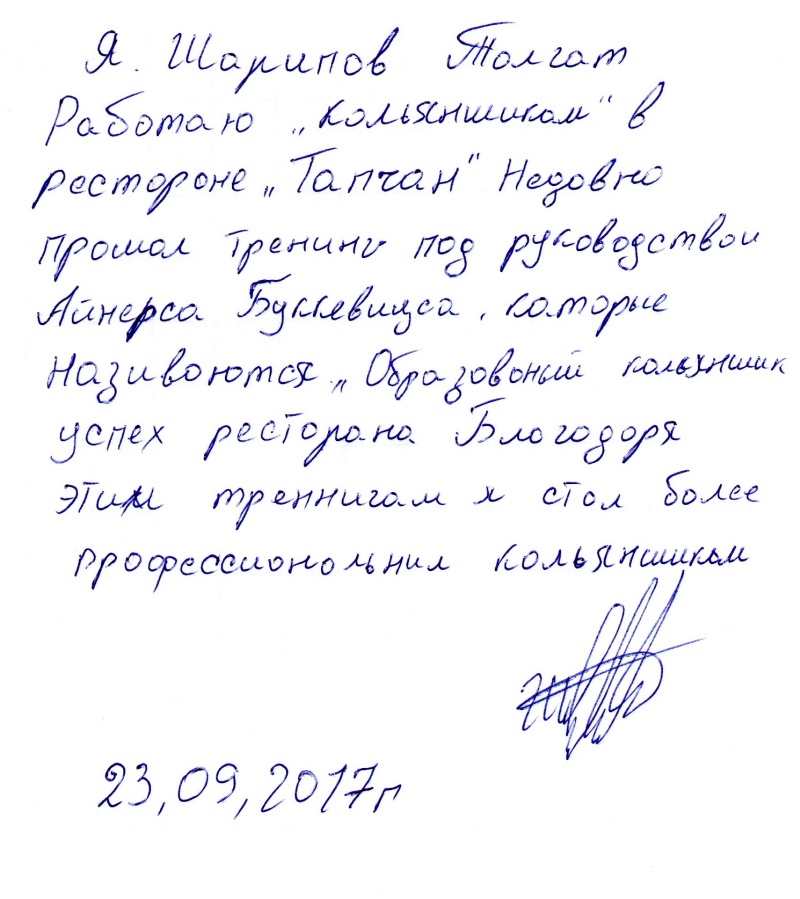 Я. Шарипов Толгат
Работаю „кольяншикам" в
рестороне „Тапчан" Недовно
прошол тренинг под руководством
Айнерса Буккевицса, каторые
називоются „Образовоный кольяншик
успех ресторана Благодоря
этим треннигам я стал более
професcиональним кольяншикам
23,09,2017г